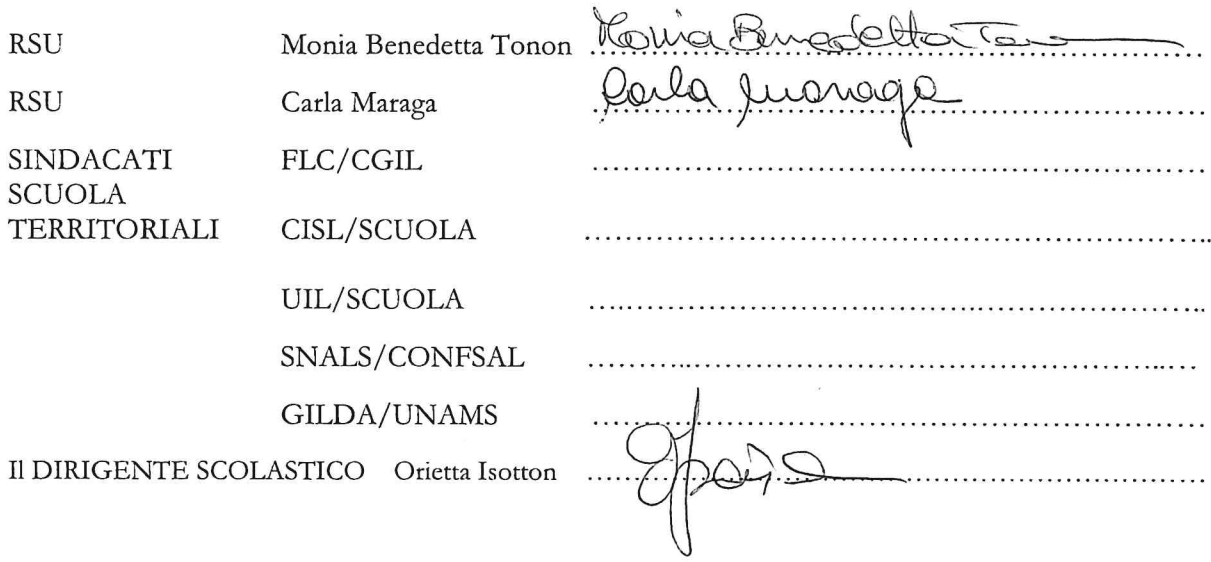 RSU Monia Benedetta Tonon Monia Benedetta Tonon
RSU Carla Maraga Carla Maraga
SINDACATI FLC/CGIL
SCUOLA
TERRITORIALI CISL/SCUOLA
UIL/SCUOLA
SNALS/CONFSAL
GILDA/UNAMS
Il DIRIGENTE SCOLASTICO Orietta Isotton